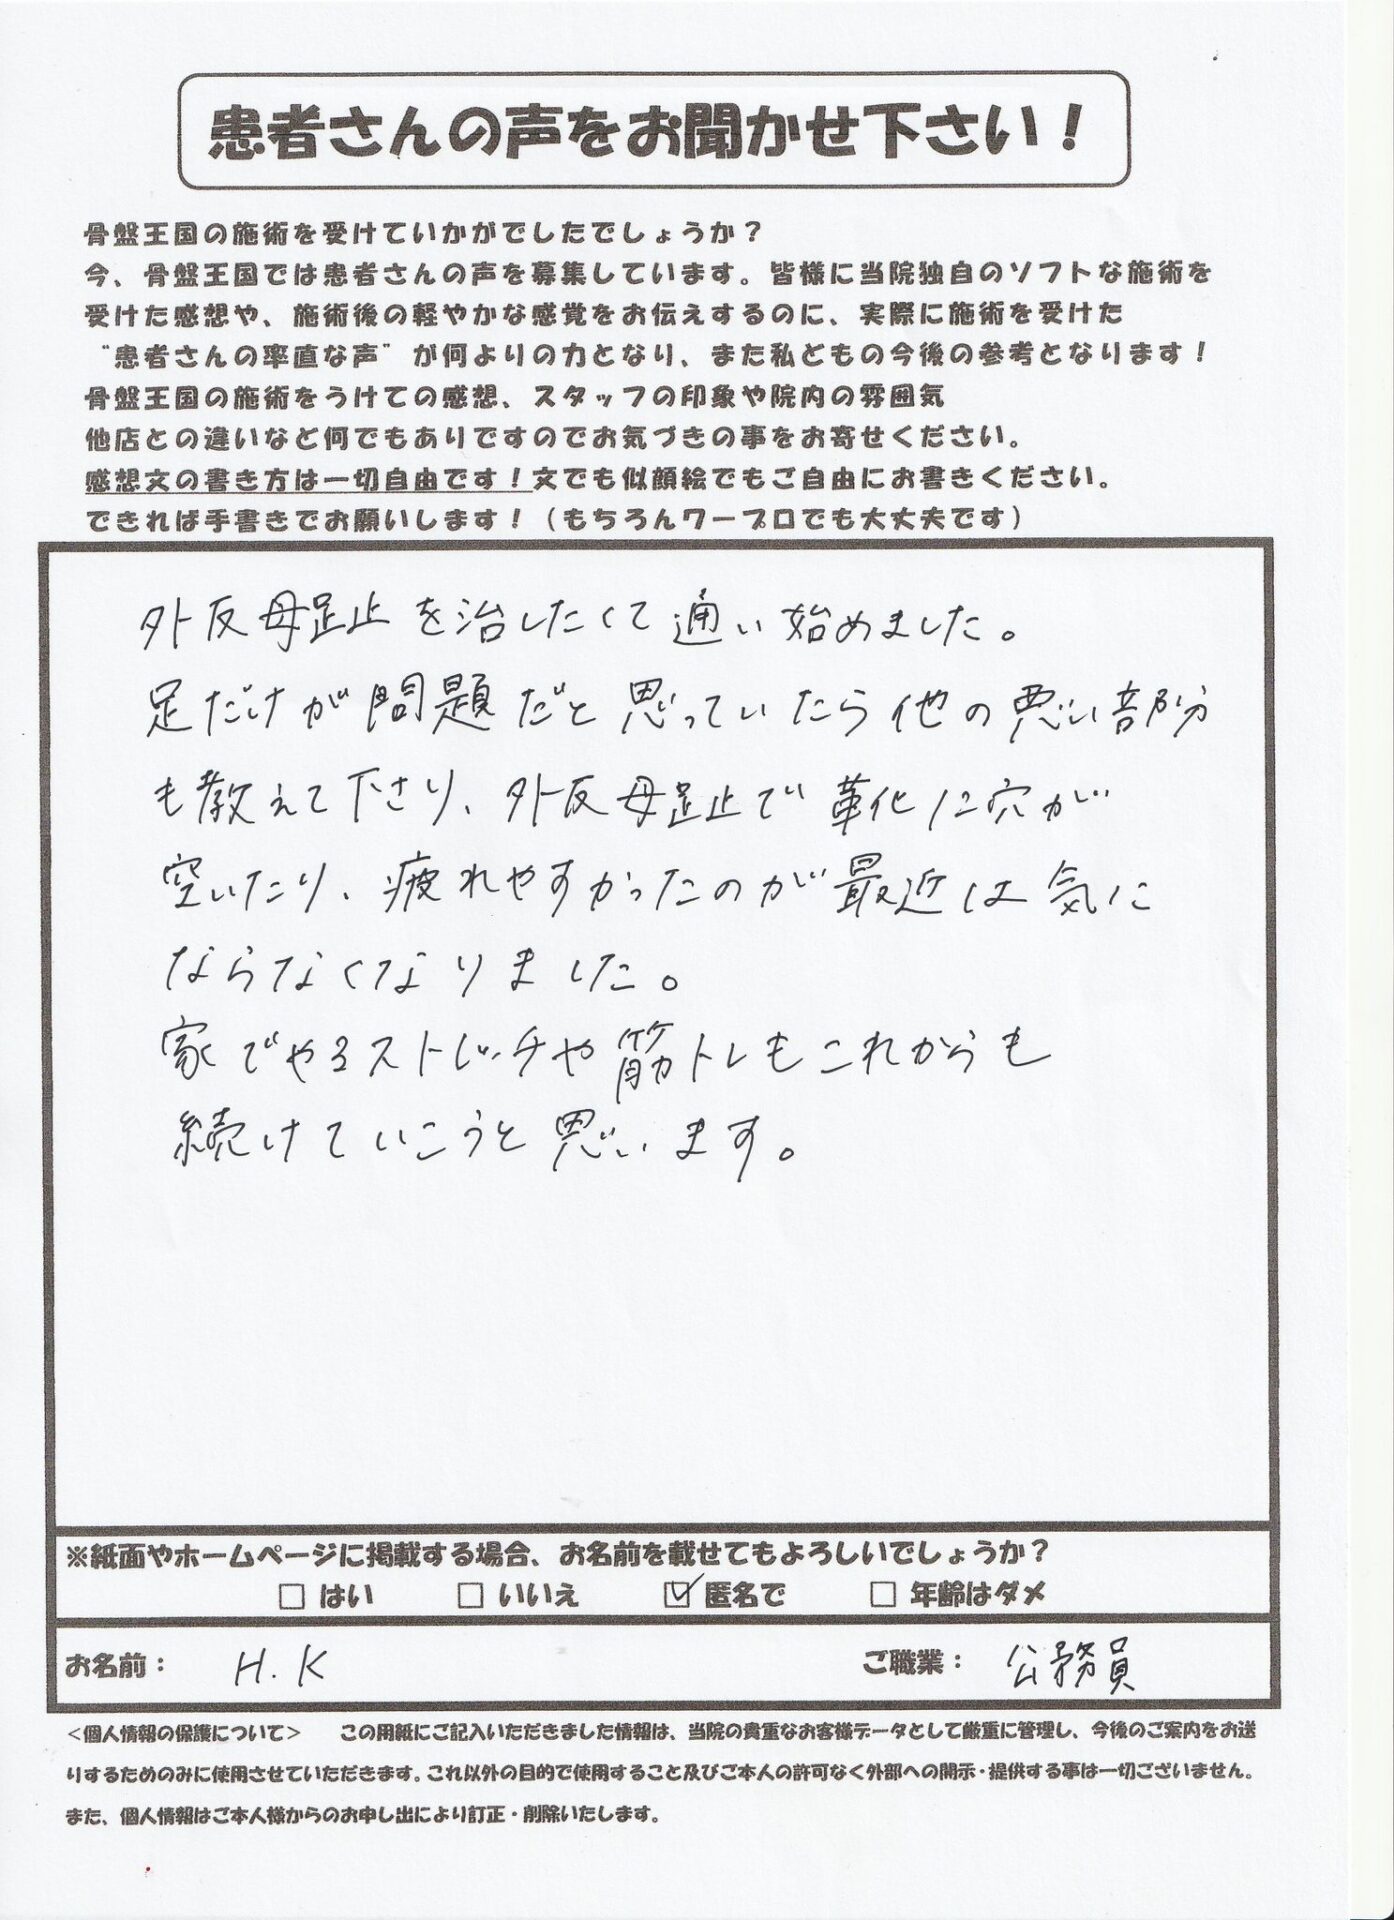 患者さんの声をお聞かせ下さい！
骨盤王国の施術を受けていかがでしたでしょうか？
今、骨盤王国では患者さんの声を募集しています。皆様に当院独自のソフトな施術を
受けた感想や、施術後の軽やかな感覚をお伝えするのに、実際に施術を受けた
“患者さんの率直な声”が何よりの力となり、また私どもの今後の参考となります！
骨盤王国の施術をうけての感想、スタッフの印象や院内の雰囲気
他店との違いなど何でもありですのでお気づきの事をお寄せください。
感想文の書き方は一切自由です！文でも似顔絵でもご自由にお書きください。
できれば手書きでお願いします！（もちろんワープロでも大丈夫です）
外反母趾を治したくて通い始めました。
足だけが問題だと思っていたら他の悪い部分
も教えて下さり、外反母趾で革靴に穴が
空いたり、疲れやすかったのが最近は気に
ならなくなりました。
家でやるストレッチや筋トレもこれからも
続けていこうと思います。
※紙面やホームページに掲載する場合、お名前を載せてもよろしいでしょうか？
□ はい □ いいえ ☑ 匿名で □ 年齢はダメ
お名前： H.K ご職業： 公務員
＜個人情報の保護について＞ この用紙にご記入いただきました情報は、当院の貴重なお客様データとして厳重に管理し、今後のご案内をお送
りするためのみに使用させていただきます。これ以外の目的で使用すること及びご本人の許可なく外部への開示・提供する事は一切ございません。
また、個人情報はご本人様からのお申し出により訂正・削除いたします。